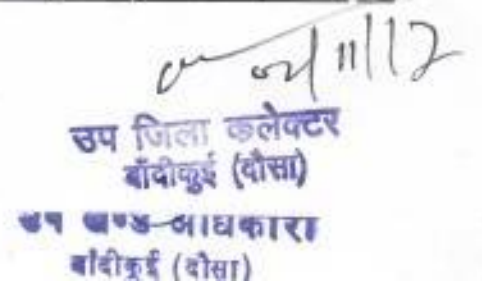 02/11/12
उप जिला कलेक्टर
बाँदीकुई (दौसा)
उप खण्ड अधिकारी
बाँदीकुई (दौसा)